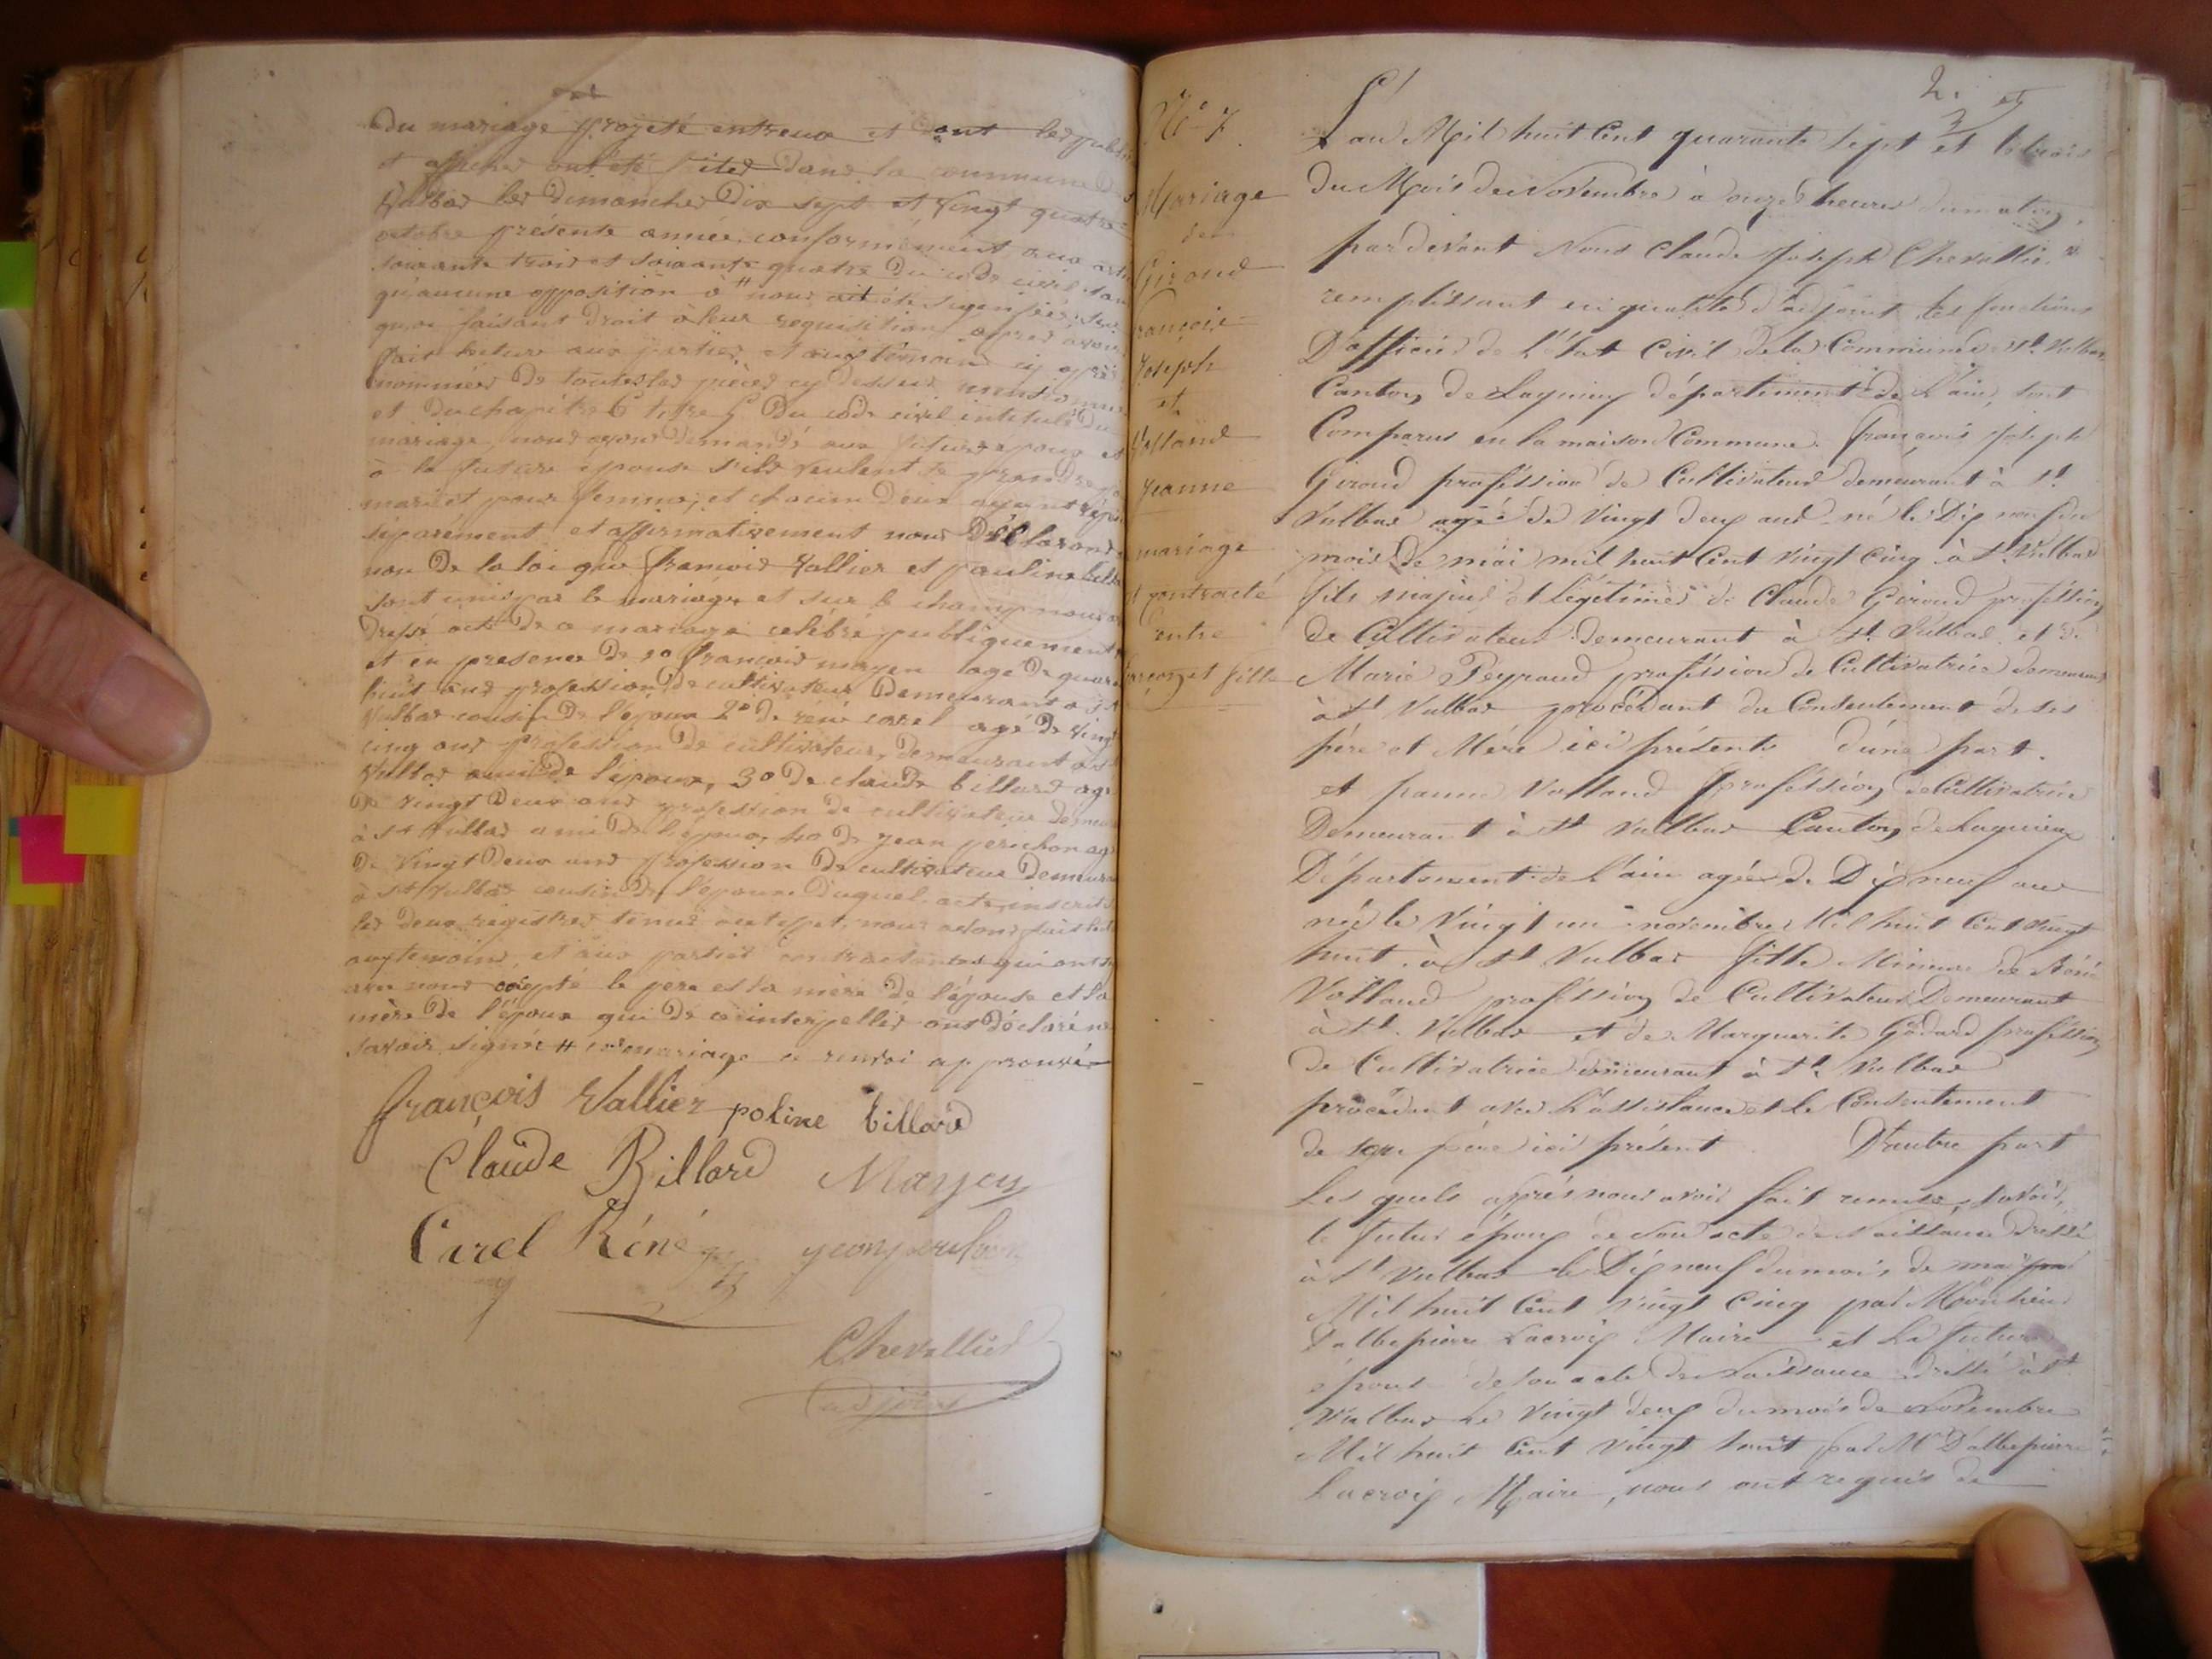 du mariage projeté entreux et dont les publi
et affiches ont été faites dans la commune de
Vulbas les dimanches dix sept et vingt quatre
octobre présente année, conformément aux arti
soixante trois et soixante quatre du code civil san
qu'aucune opposition à # nous ait été signifiée. sur
quoi faisant droit à leur requisition après avoir
fait lecture aux parties et aux témoins cy après
nommées de toutes les pièces cy dessus mentionnées
et du chapitre 6 titre 5 du code civil intitulé du
mariage, nous avons demandé aux futur époux et
à la future épouse s'ils veulent se prendre pour
mari et pour femme, et chacun d'eux ayant répon
séparément et affirmativement nous déclarons
nom de la loi que françois Vallier et pauline billa
sont unis par le mariage et sur le champ nous a
dressé acte de ce mariage célébré publiquement
et en presence de 1º françois mayen agé de quara
huit ans profession de cultivateur demeurant à St
Vulbas cousin de l'époux 2º de réné carel agé de vingt
cinq ans profession de cultivateur, demeurant à St
Vulbas ami de l'époux, 3º de claude billard agé
de vingt deux ans profession de cultivateur demeu
à St Vulbas ami de l'époux, 4º de jean perichon agé
de vingt deux ans profession de cultivateur demeura
à St Vulbas cousin de l'époux. duquel acte, inscrits
les deux registres tenus à cet effet, nous avons fait lect
aux temoins, et aux parties contractantes qui ont s
avec nous excepté le père et la mère de l'épouse et la
mère de l'époux qui de ce interpellés ont déclaré ne
savoir signer # ce mariage ce renvoi approuvé
françois Vallier poline billard
Claude Billard Mayen
Carel Réné jean perichon
Chevallier
adjoint
2.
Nº 7
Mariage
de
Giroud
françois
Joseph
et
Volland
Jeanne
mariage
contracté
entre
garçon et fille
L'an Mil huit Cent quarante Sept et le trois
du Mois de Novembre à onze heures du matin,
pardevant Nous Claude Joseph Chevallier
remplissant en qualité d'adjoint les fonctions
D'officier de l'état Civil de la Commune de St. Vulbas
Canton de Lagnieu département de l'ain, sont
Comparus en la maison Commune. françois Joseph
Giroud profession de Cultivateur demeurant à St.
Vulbas agé de Vingt deux ans né le Dix neuf du
mois de mai mil huit Cent vingt Cinq à St. Vulbas
fils majeur et légitime de Claude Giroud profession
de Cultivateur demeurant à St. Vulbas et de
Marie Peyraud profession de Cultivatrice demeurant
à St Vulbas procédant du Consentement de ses
père et Mère ici présents d'une part.
et Jeanne Volland profession de Cultivatrice
Demeurant à St Vulbas Canton de Lagnieu
Département de l'ain agée de Dix neuf ans
née le Vingt un novembre Mil huit Cent vingt
huit à St Vulbas fille Mineure de Réné
Volland profession de Cultivateur Demeurant
à St. Vulbas et de Marguerite Godard profession
de Cultivatrice demeurant à St. Vulbas
procédant avec l'assistance et le Consentement
de son père ici présent D'autre part
Les quels après nous avoir fait remise, savoir,
le futur époux de son acte de Naissance dressé
à St Vulbas le Dix neuf du mois de mai
Mil huit Cent Vingt Cinq par Monsieur
Dalbepierre Lacroix Maire et la future
épouse de son acte de Naissance dressé à St
Vulbas Le Vingt deux du mois de Novembre
Mil huit Cent Vingt huit par Mr Dalbepierre
Lacroix Maire, nous ont requis de